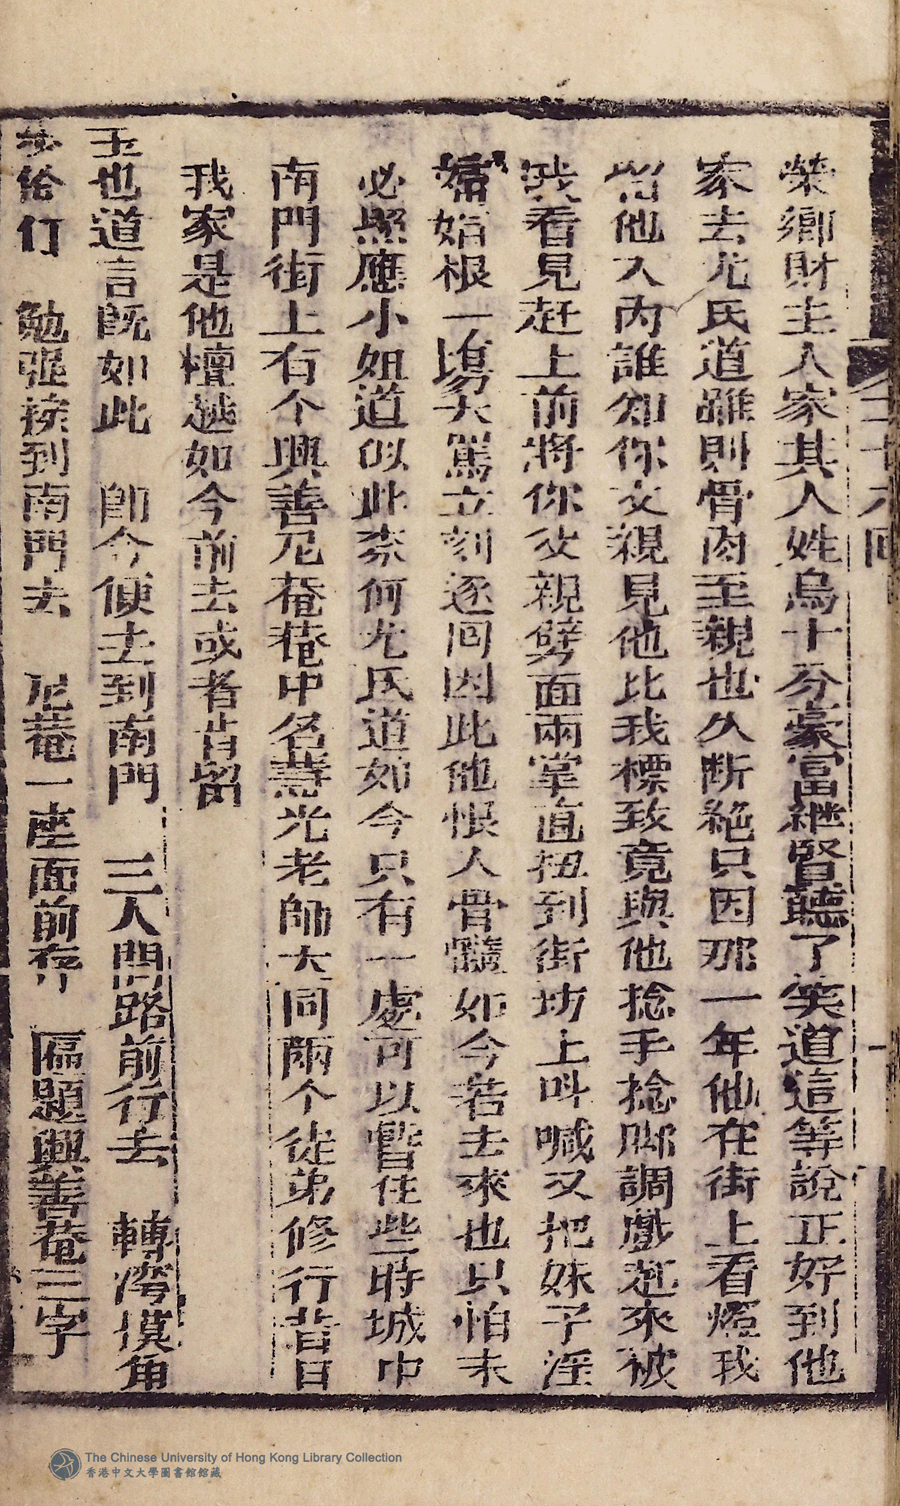 二十六回
榮鄉財主人家其人姓烏十分豪富継賢聽了笑道這等說正好到他
家去尤氏道雖則骨肉至親也久断絶只因那一年他在街上看燈我
留他入內誰知你父親見他比我標致竟與他捻手捻脚調戲起來被
我看見赶上前將你父親劈面兩掌直扭到街坊上呌喊又把妹子淫
婦娼根一塲大罵立刻逐囘因此他恨人骨髓如今若去來也只怕未
必照應小姐道似此柰何尤氏道如今只有一處可以暫住些時城中
南門街上有个興善尼菴菴中名慧光老師太同兩个徒弟修行昔日
我家是他檀越如今前去或者肯留
玉也道言既如此　卽今便走到南門　三人問路前行去　轉湾摸角
勉强挨到南門去　尼菴一座面前存　匾題興善菴三字
The Chinese University of Hong Kong Library Collection
香港中文大學圖書館館藏